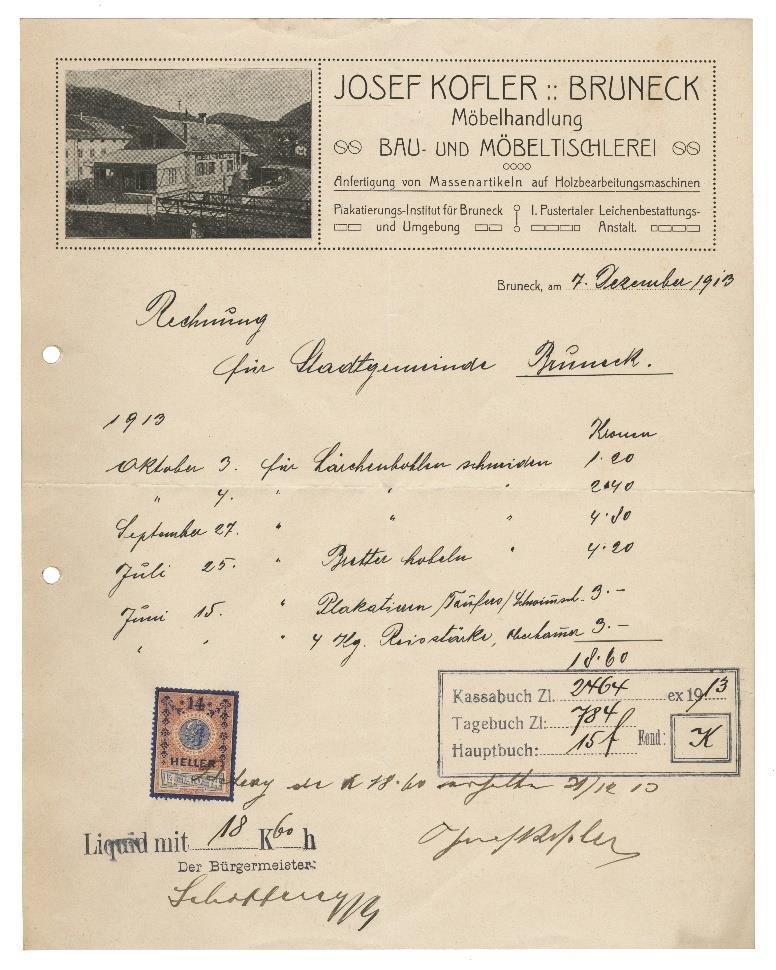 JOSEF KOFLER :: BRUNECK
Möbelhandlung
BAU- UND MÖBELTISCHLEREI
Anfertigung von Massenartikeln auf Holzbearbeitungsmaschinen
Plakatierungs-Institut für Bruneck und Umgebung
I. Pustertaler Leichenbestattungs-Anstalt.
Bruneck, am 7. Dezember 1913
Rechnung
für Stadtgemeinde Bruneck.
1913
Kronen
Oktober 3. für Lärchenbohlen schneiden 1·20
" 4. " " " 2·40
September 27. " " " 4·80
Juli 25. " Bretter hobeln " 4·20
Juni 15. " Plakatieren /Taufers/ 3.-
" " " 4 Kg. Reisstärke, 3.-
18·60
Kassabuch Zl. 2464 ex 1913
Tagebuch Zl: 784
Hauptbuch: 15f Fond: K
14
HELLER
K 18·60 erhalten 21/12 13
Liquid mit 18 K 60 h
Josef Kofler
Der Bürgermeister: